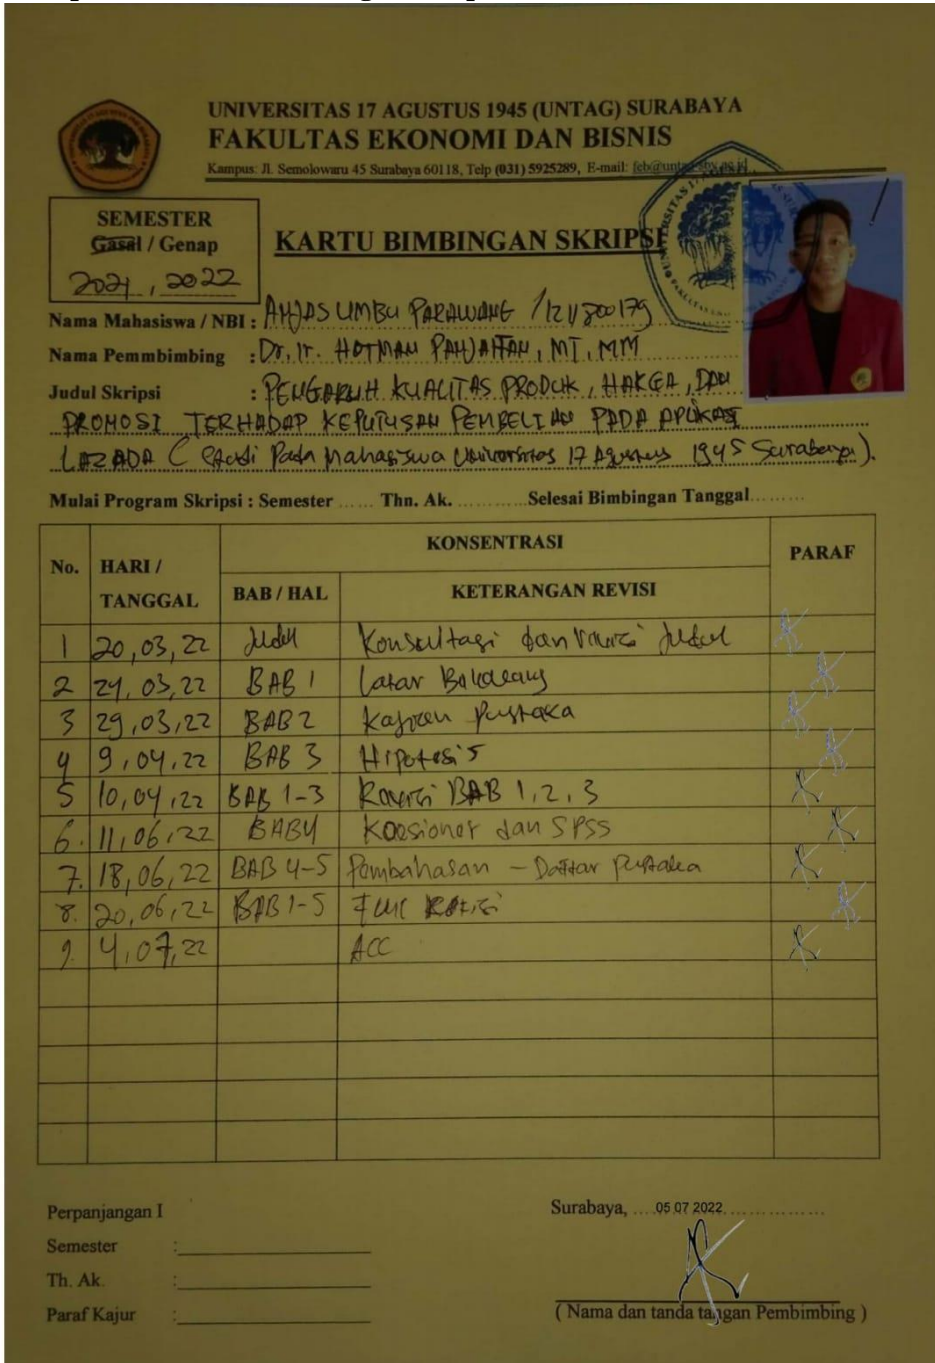 UNIVERSITAS 17 AGUSTUS 1945 (UNTAG) SURABAYA
FAKULTAS EKONOMI DAN BISNIS
Kampus: Jl. Semolowaru 45 Surabaya 60118, Telp (031) 5925289, E-mail: feb@untag-sby.ac.id
SEMESTER
Gasal / Genap
2021, 2022
KARTU BIMBINGAN SKRIPSI
Nama Mahasiswa / NBI : ANJAS UMBU PARAWANG /
Nama Pemmbimbing : Dr. Ir. HOTMAN PANJAITAN, MT, MM
Judul Skripsi : PENGARUH KUALITAS PRODUK, HARGA, DAN
PROMOSI TERHADAP KEPUTUSAN PEMBELIAN PADA APLIKASI
LAZADA ( Studi Pada Mahasiswa Universitas 17 Agustus 1945 Surabaya).
Mulai Program Skripsi : Semester ...... Thn. Ak. ............ Selesai Bimbingan Tanggal.........
No. HARI / TANGGAL KONSENTRASI PARAF
BAB / HAL KETERANGAN REVISI
1 20,03,22 Judul Konsultasi dan Judul
2 24,03,22 BAB 1 Latar Belakang
3 29,03,22 BAB 2 Kajian Pustaka
4 9,04,22 BAB 3 Hipotesis
5 10,04,22 BAB 1-3 Revisi BAB 1,2,3
6. 11,06,22 BAB 4 Koesioner dan SPSS
7. 18,06,22 BAB 4-5 Pembahasan - Daftar Pustaka
8. 20,06,22 BAB 1-5
9. 4,07,22 ACC
Perpanjangan I
Semester :
Th. Ak. :
Paraf Kajur :
Surabaya, .... 05 07 2022
( Nama dan tanda tangan Pembimbing )